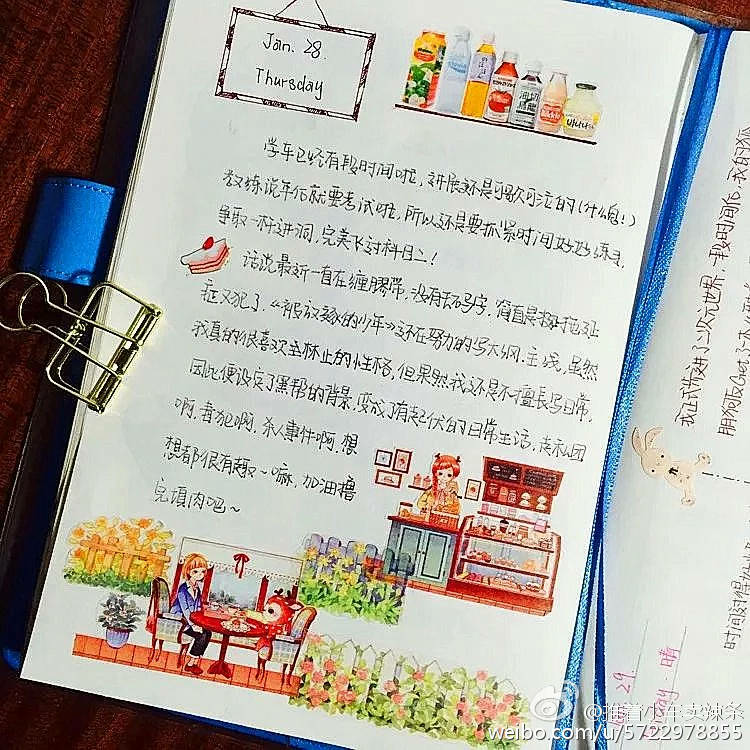 Jan. 28.
Thursday
学车已经有段时间啦,进展还是可歌可泣的(什么鬼!)
教练说年后就要考试啦,所以还是要抓紧时间好好练习,
争取一杆进洞,完美飞过科目二!
话说最近一直在缠胶带,没有去码字,简直是拖延
症又犯了,《被放逐的少年》还在努力的写大纲、主线,虽然
我真的很喜欢主林止的性格,但果然我还是不擅长写日常,
因此便设定了黑帮的背景,变成了有起伏的日常生活,走私团
啊,毒犯啊,杀人事件啊,想
想都很有趣~嘛,加油撸
完填肉吧~
我正式先进了二次元世界,
时间过得
29.
晴
@推着小车卖辣条
weibo.com/u/5722978855